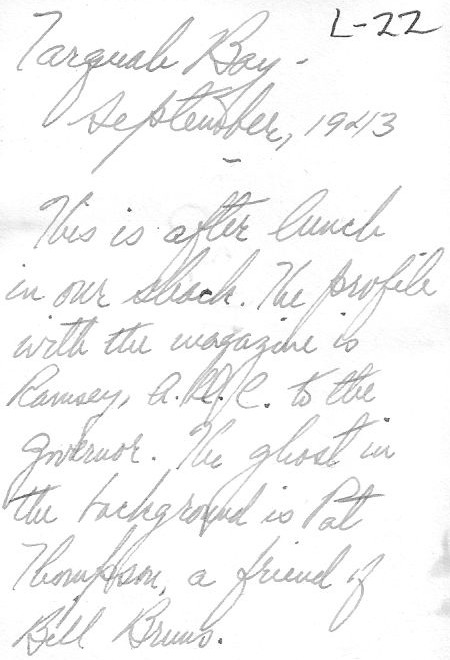 L-22
Tarquah Bay -
September, 1943
-
This is after lunch
in our shack. The profile
with the magazine is
Ramsey, A.D.C. to the
governor. The ghost in
the background is Pat
Thompson, a friend of
Bill Bruns.